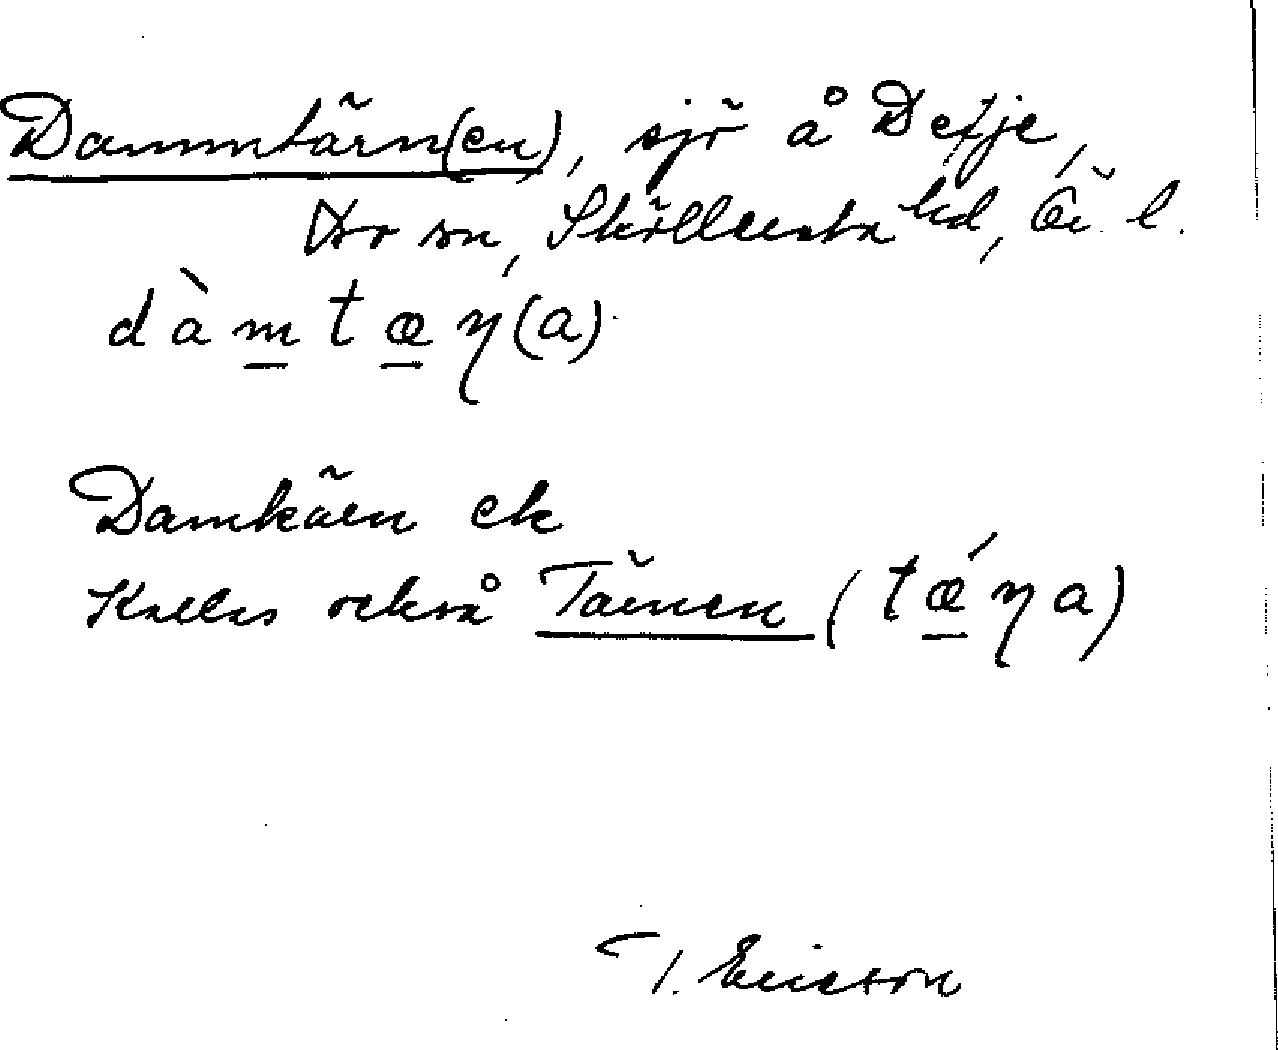 Dammtärn(en), sjö å Defje,
Dr sn, Sköllersta hd, Ö. l.
dàmtæη(a)
Damkärn ek
Kallas också Tärnen (tǽηa)
T. Ericson